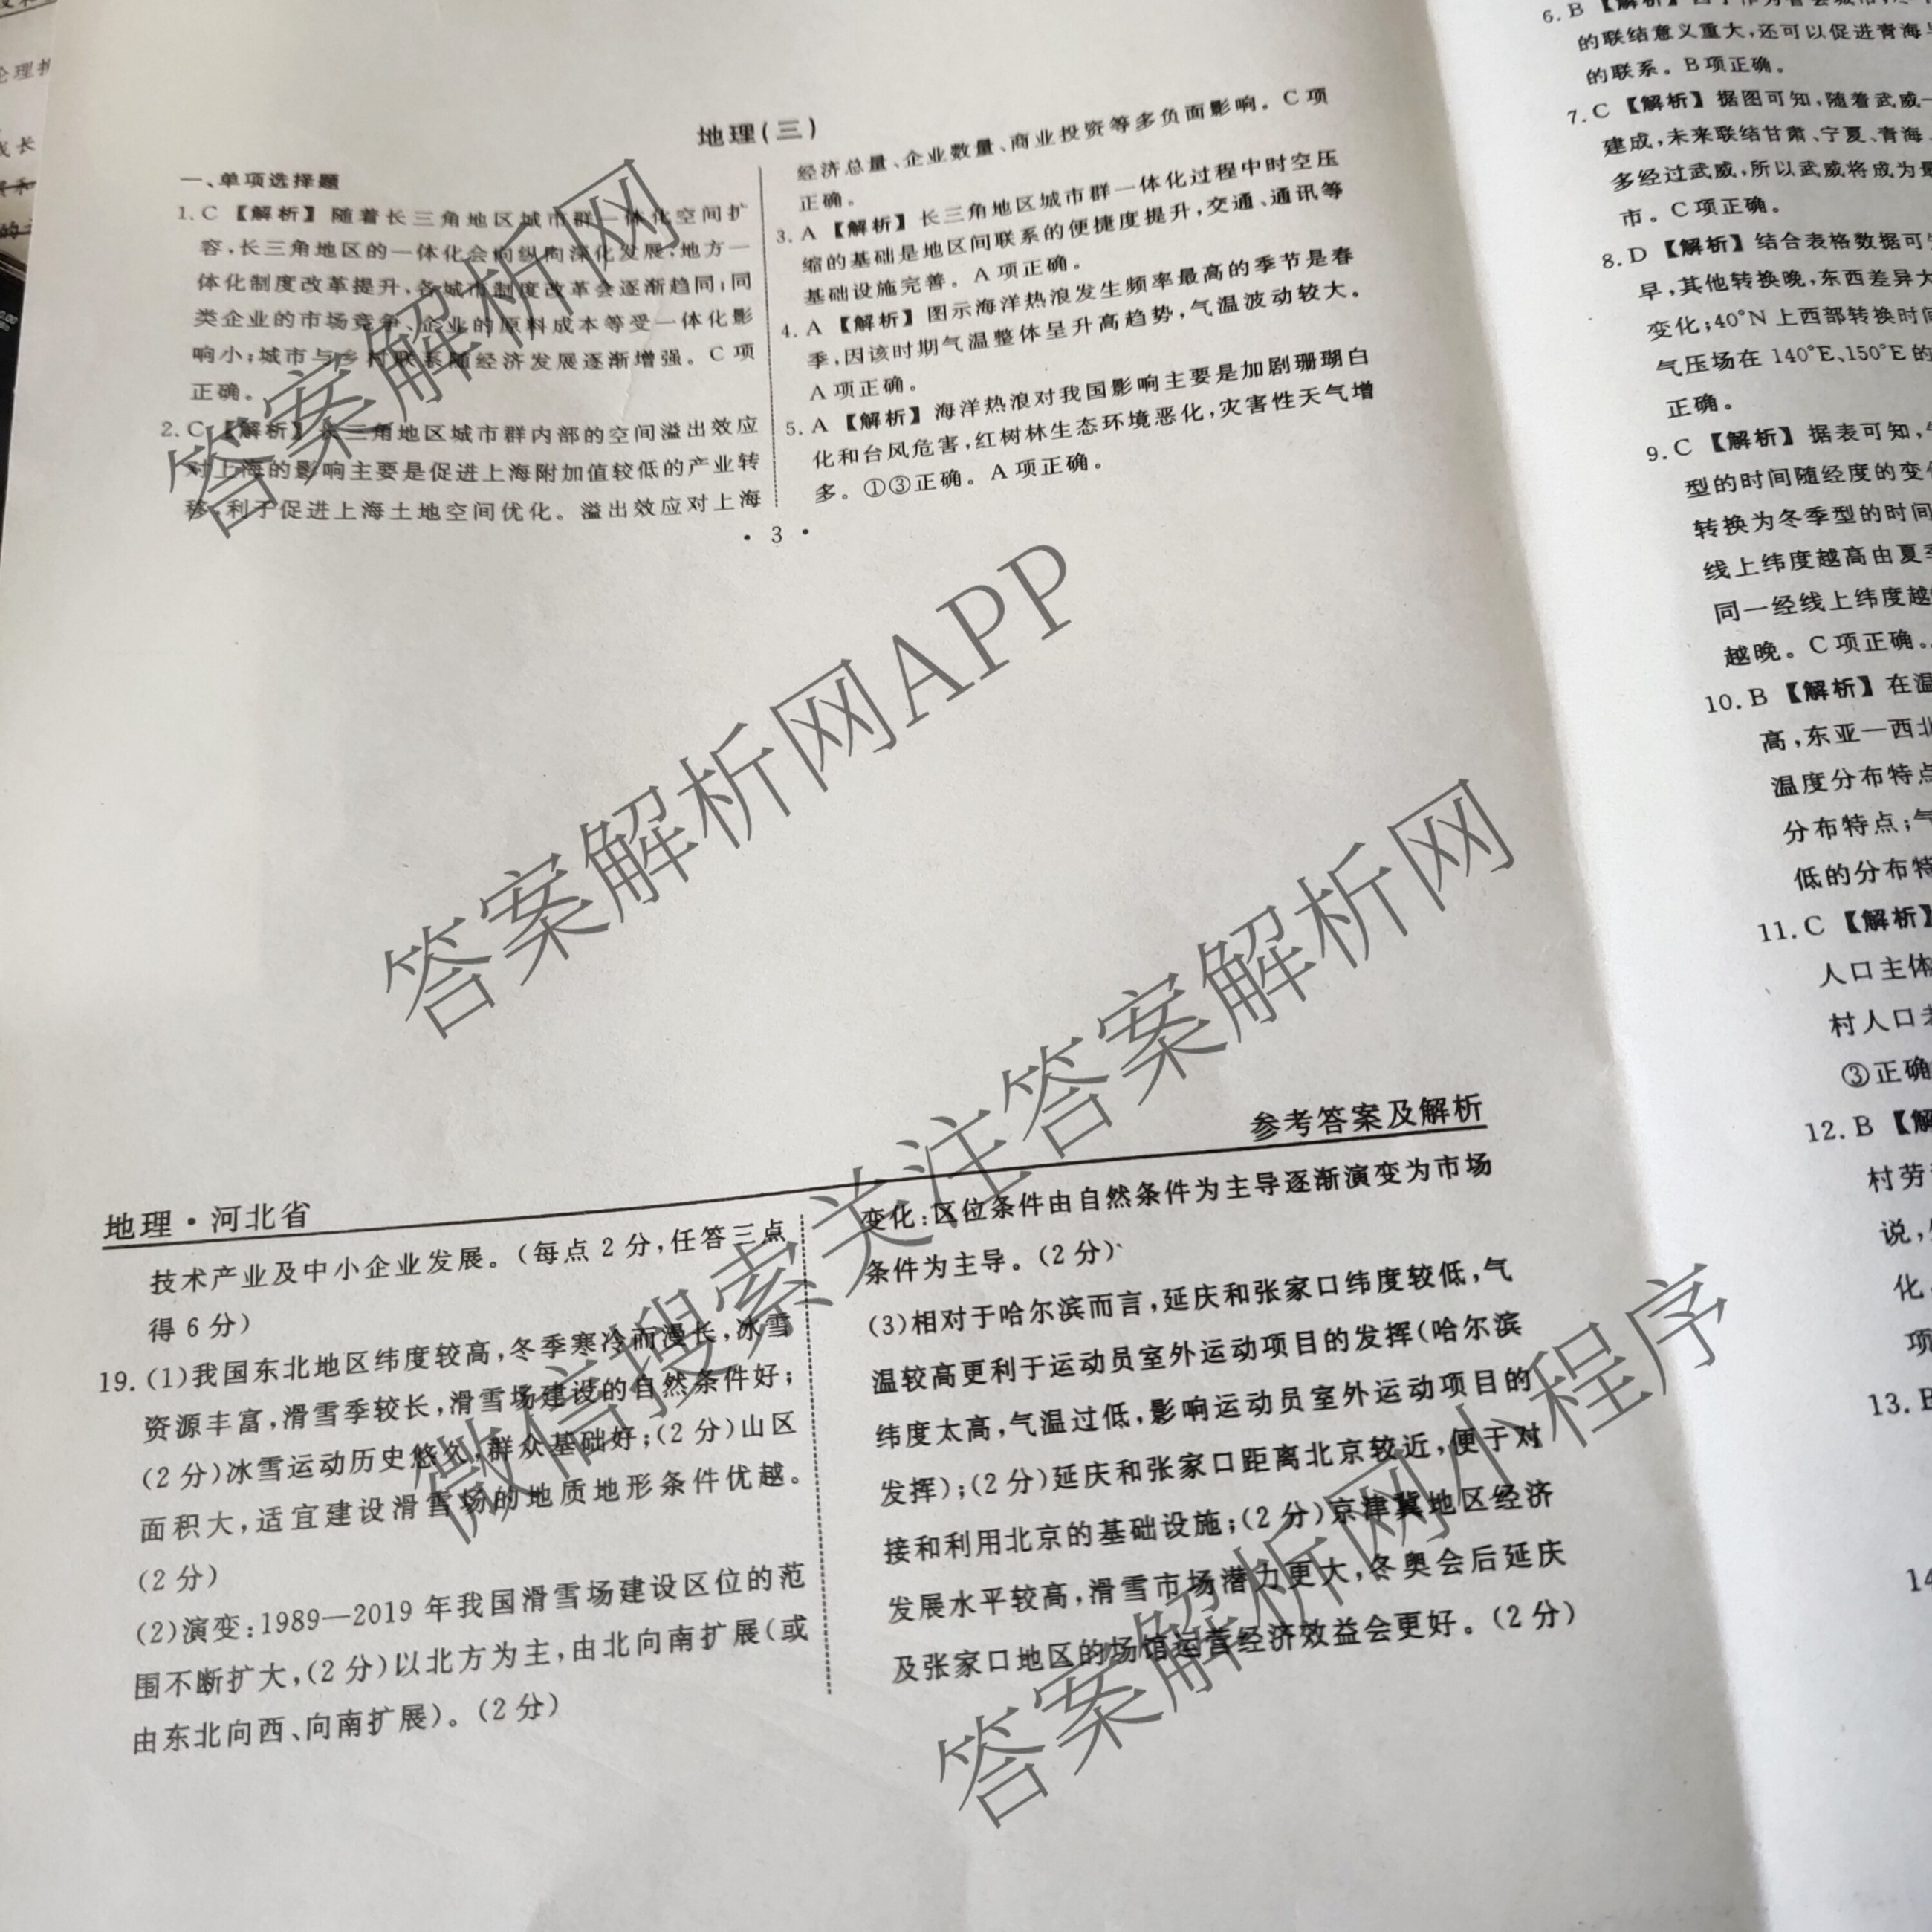 地理(三)
一、单项选择题
1.C 【解析】随着长三角地区城市群一体化空间扩
容,长三角地区的一体化会向纵向深化发展,地方一
体化制度改革提升,各城市制度改革会逐渐趋同;同
类企业的市场竞争、企业的原料成本等受一体化影
响小;城市与乡村联系随经济发展逐渐增强。C项
正确。
2.C 【解析】长三角地区城市群内部的空间溢出效应
对上海的影响主要是促进上海附加值较低的产业转
移,利于促进上海土地空间优化。溢出效应对上海
经济总量、企业数量、商业投资等多负面影响。C项
正确。
3.A 【解析】长三角地区城市群一体化过程中时空压
缩的基础是地区间联系的便捷度提升,交通、通讯等
基础设施完善。A项正确。
4.A 【解析】图示海洋热浪发生频率最高的季节是春
季,因该时期气温整体呈升高趋势,气温波动较大。
A项正确。
5.A 【解析】海洋热浪对我国影响主要是加剧珊瑚白
化和台风危害,红树林生态环境恶化,灾害性天气增
多。①③正确。A项正确。
• 3 •
地理·河北省
参考答案及解析
技术产业及中小企业发展。(每点2分,任答三点
得6分)
19.(1)我国东北地区纬度较高,冬季寒冷而漫长,冰雪
资源丰富,滑雪季较长,滑雪场建设的自然条件好;
(2分)冰雪运动历史悠久,群众基础好;(2分)山区
面积大,适宜建设滑雪场的地质地形条件优越。
(2分)
(2)演变:1989—2019年我国滑雪场建设区位的范
围不断扩大,(2分)以北方为主,由北向南扩展(或
由东北向西、向南扩展)。(2分)
变化:区位条件由自然条件为主导逐渐演变为市场
条件为主导。(2分)
(3)相对于哈尔滨而言,延庆和张家口纬度较低,气
温较高更利于运动员室外运动项目的发挥(哈尔滨
纬度太高,气温过低,影响运动员室外运动项目的
发挥);(2分)延庆和张家口距离北京较近,便于对
接和利用北京的基础设施;(2分)京津冀地区经济
发展水平较高,滑雪市场潜力更大,冬奥会后延庆
及张家口地区的场馆运营经济效益会更好。(2分)
6.B
的联结意义重大,还可以促进青海
的联系。B项正确。
7.C 【解析】据图可知,随着武威一
建成,未来联结甘肃、宁夏、青海
多经过武威,所以武威将成为最
市。C项正确。
8.D 【解析】结合表格数据可
早,其他转换晚,东西差异大
变化;40°N上西部转换时间
气压场在140°E、150°E的
正确。
9.C 【解析】据表可知,
型的时间随经度的变
转换为冬季型的时间
线上纬度越高由夏季
同一经线上纬度越
越晚。C项正确。
10.B 【解析】在温
高,东亚—西北
温度分布特点
分布特点;气
低的分布特
11.C 【解析】
人口主体
村人口
③正确
12.B 【解
村劳
说,
化
项
13.
14
答案解析网
答案解析网APP
微信搜索关注答案解析网
答案解析网小程序